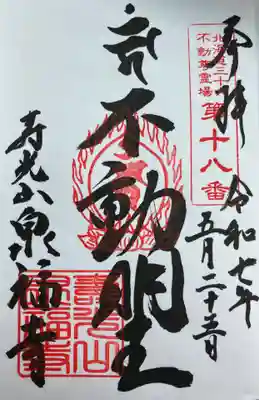 奉拝
令和七年
五月二十五日
北海道三十六
不動尊霊場
第十八番
不動明王
寿光山泉福寺